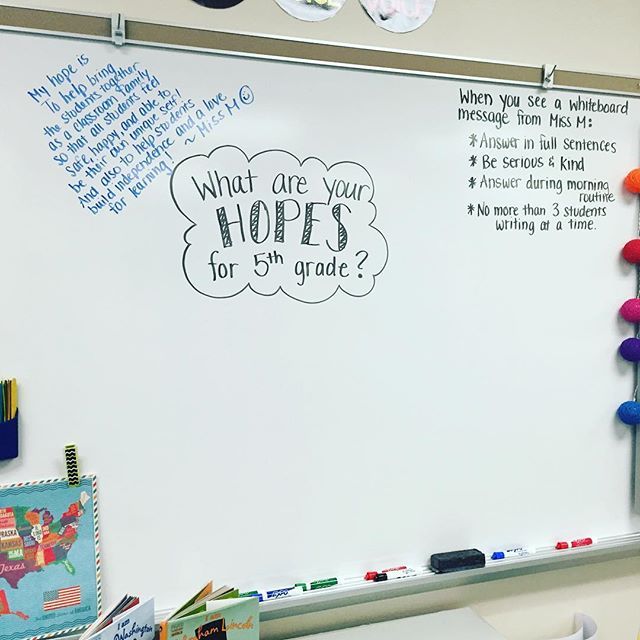 My hope is
To help bring
the students together
as a classroom family
so that all students feel
safe, happy, and able to
be their own unique self!
And also to help students
build independence and a love
for learning!
~ Miss M
What are your
HOPES
for 5th grade?
When you see a whiteboard
message from Miss M:
* Answer in full sentences
* Be serious & kind
* Answer during morning
routine
* No more than 3 students
writing at a time.
Texas
I AM
Washington
I am
Abraham Lincoln
EXPO